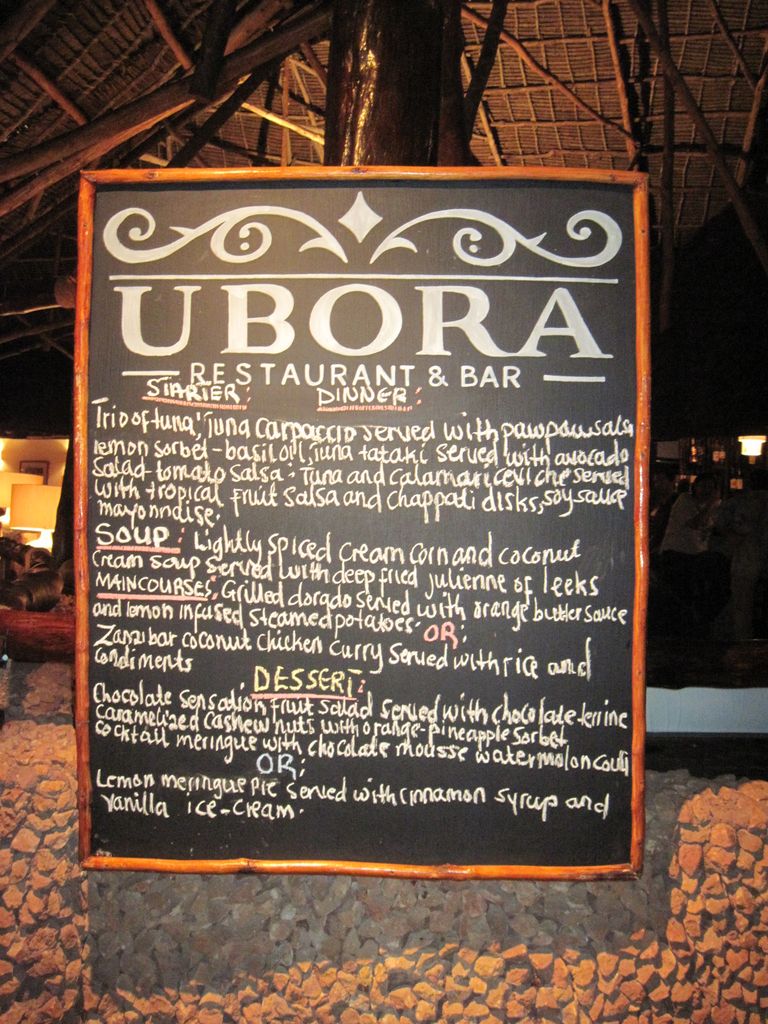 UBORA
RESTAURANT & BAR
STARTER: DINNER:
Trio of tuna; Tuna carpaccio served with pawpaw salsa
lemon sorbet - basil oil, Tuna tataki served with avocado
Salad-tomato salsa: Tuna and Calamari ceviche served
with tropical fruit salsa and chappati disks, soy sauce
mayonndise.
SOUP: Lightly spiced cream corn and coconut
cream soup served with deep fried julienne of leeks
MAINCOURSES: Grilled dorado served with orange butter sauce
and lemon infused steamed potatoes. OR:
Zanzibar coconut chicken curry served with rice and
Condiments
DESSERT:
Chocolate sensation, fruit salad served with chocolate-terrine
caramelized cashew nuts with orange-pineapple sorbet
cocktail meringue with chocolate mousse watermolon couli
OR:
Lemon meringue pie served with cinnamon syrup and
vanilla ice-cream.